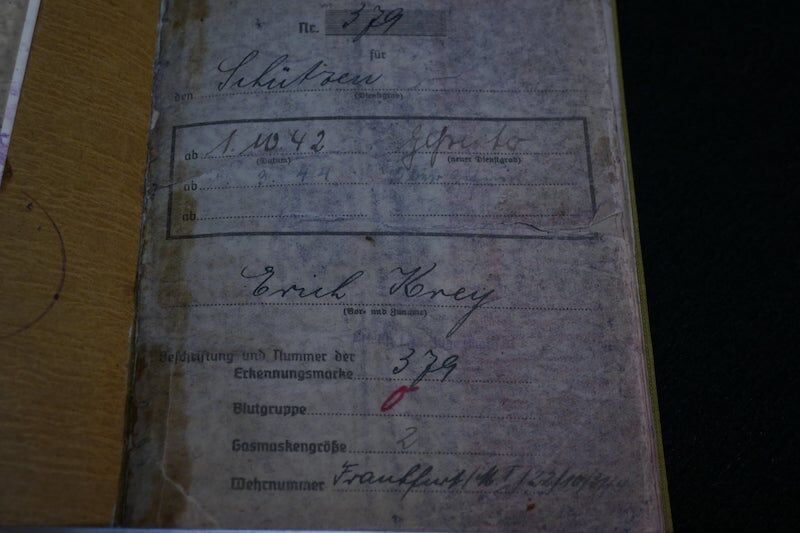 Nr. 379
für
den Schützen
(Dienstgrad)
ab 1. 10. 42 Gefreiter
(Datum) (neuer Dienstgrad)
ab
ab
Erich Krey
(Vor- und Zuname)
Beschriftung und Nummer der
Erkennungsmarke 379
Blutgruppe 0
Gasmaskengröße 2
Wehrnummer Frankfurt/M I/22/10/